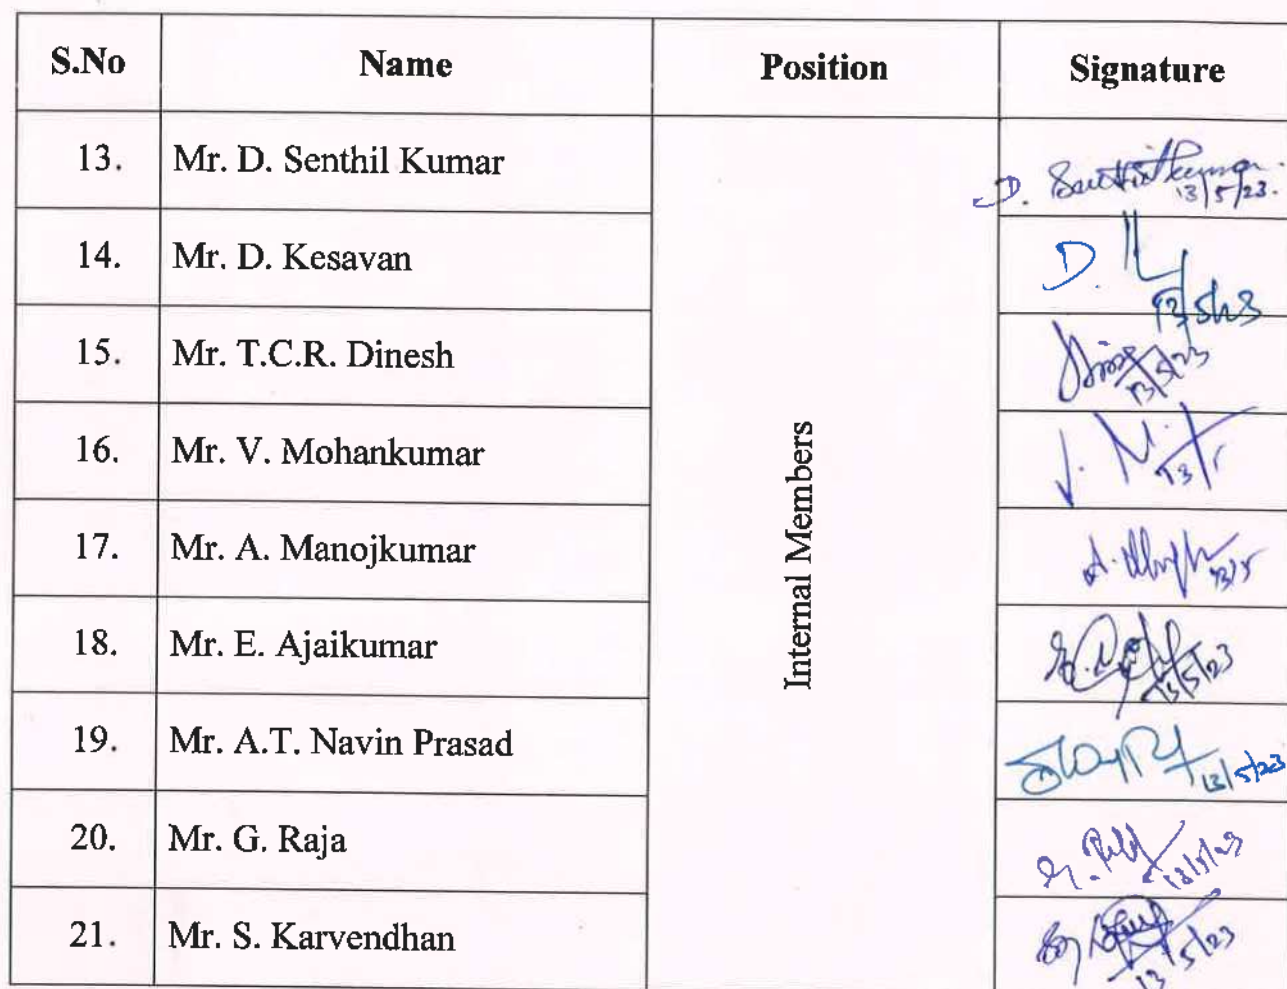 S.No Name Position Signature
13. Mr. D. Senthil Kumar D. Senthilkumar 13/5/23.
14. Mr. D. Kesavan D. 13/5/23
15. Mr. T.C.R. Dinesh 13/5/23
16. Mr. V. Mohankumar 13/5
17. Mr. A. Manojkumar A. 13/5
Internal Members
18. Mr. E. Ajaikumar 13/5/23
19. Mr. A.T. Navin Prasad 13/5/23
20. Mr. G. Raja 13/5/23
21. Mr. S. Karvendhan 13/5/23